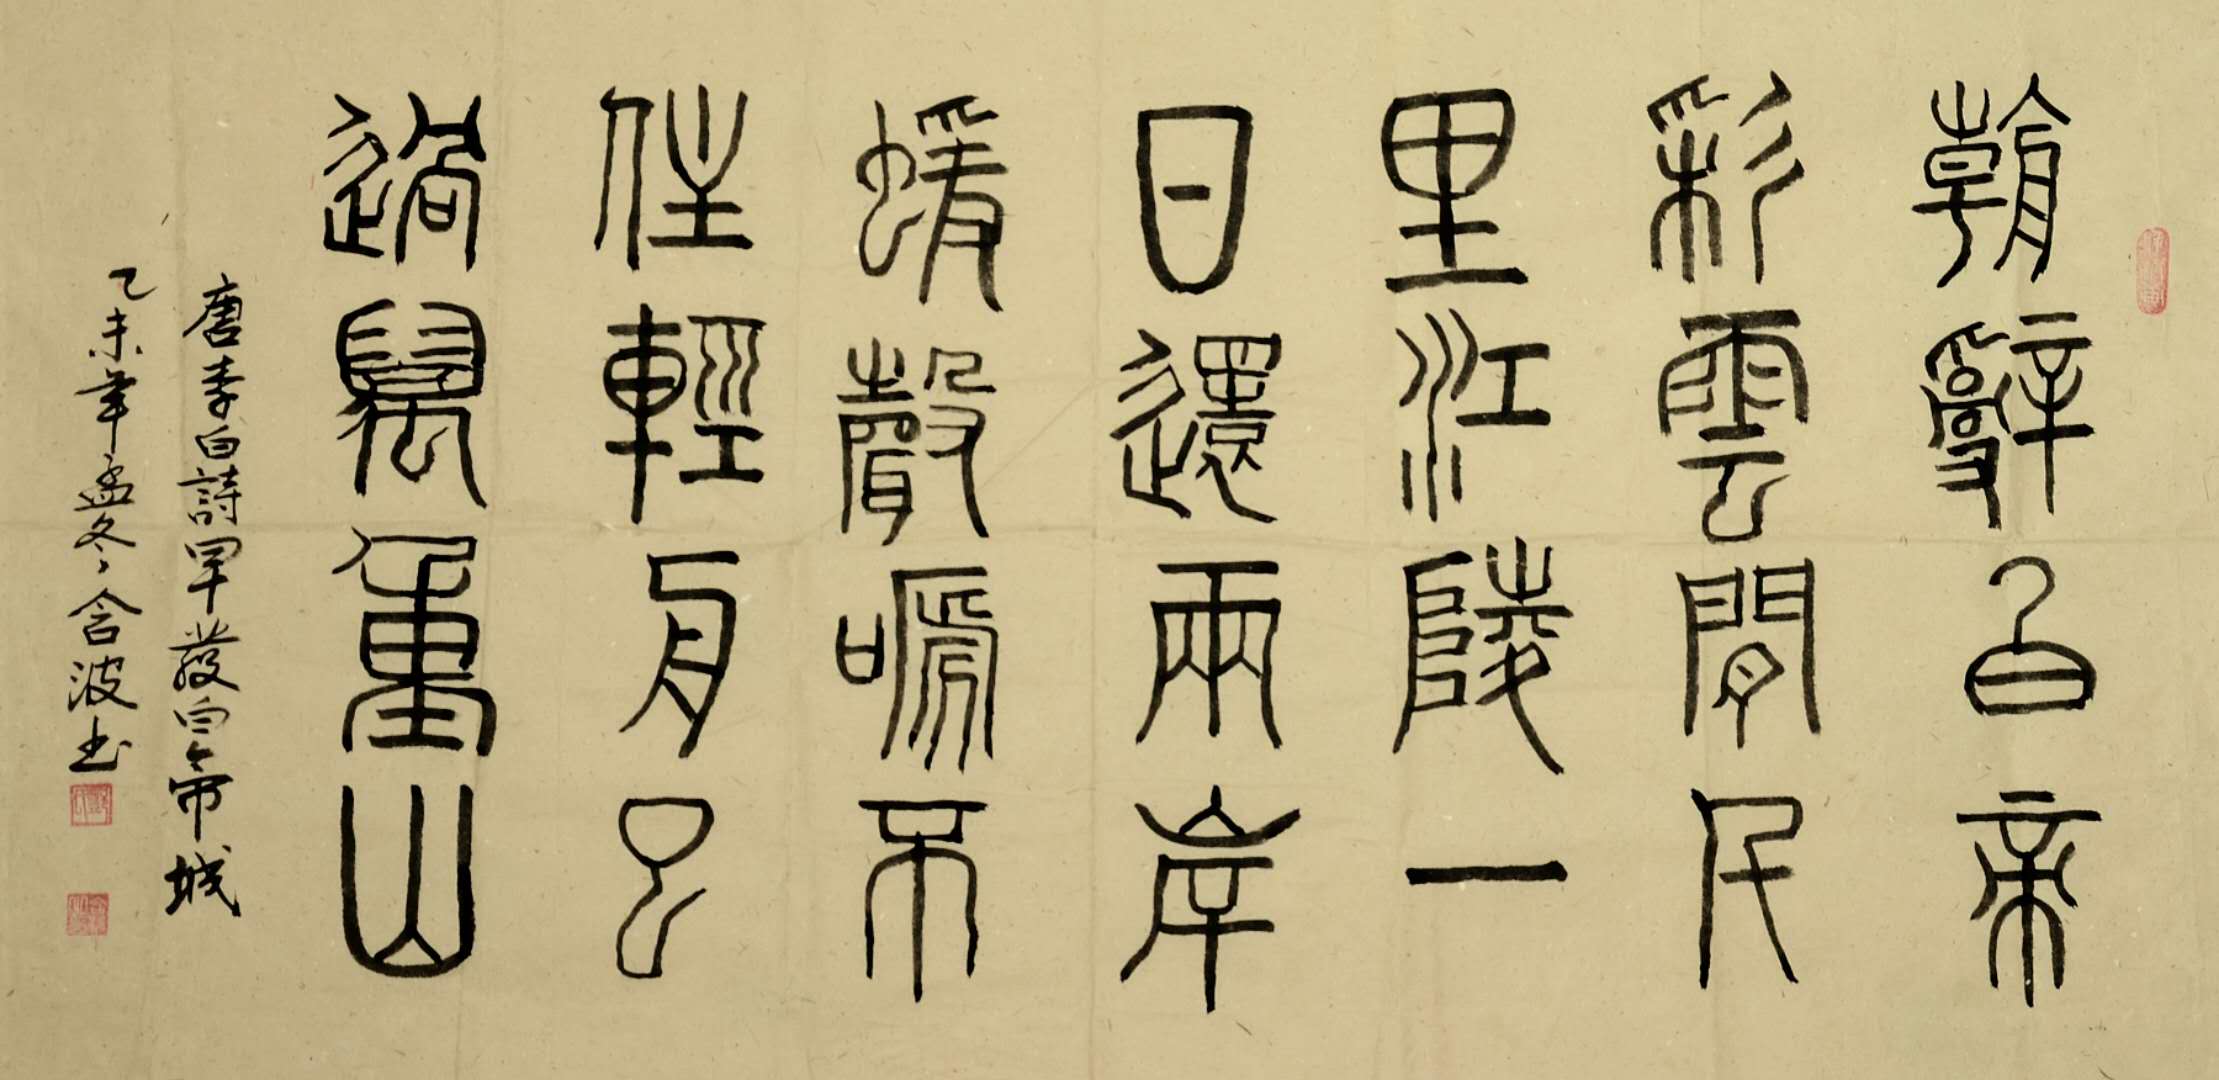 朝辭白帝
彩雲間千
里江陵一
日還兩岸
蝯聲嗁不
住輕舟已
過萬重山
唐李白詩早發白帝城
乙未年孟冬含波书